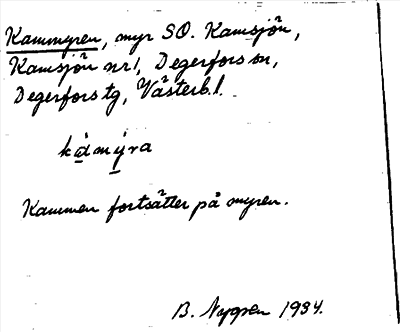 Kammyren, myr SO. Kamsjön,
Kamsjön nr 1, Degerfors sn,
Degerfors tg, Västerb. l.
kàmýra
Kammen fortsätter på myren.
B. Nygren 1934.